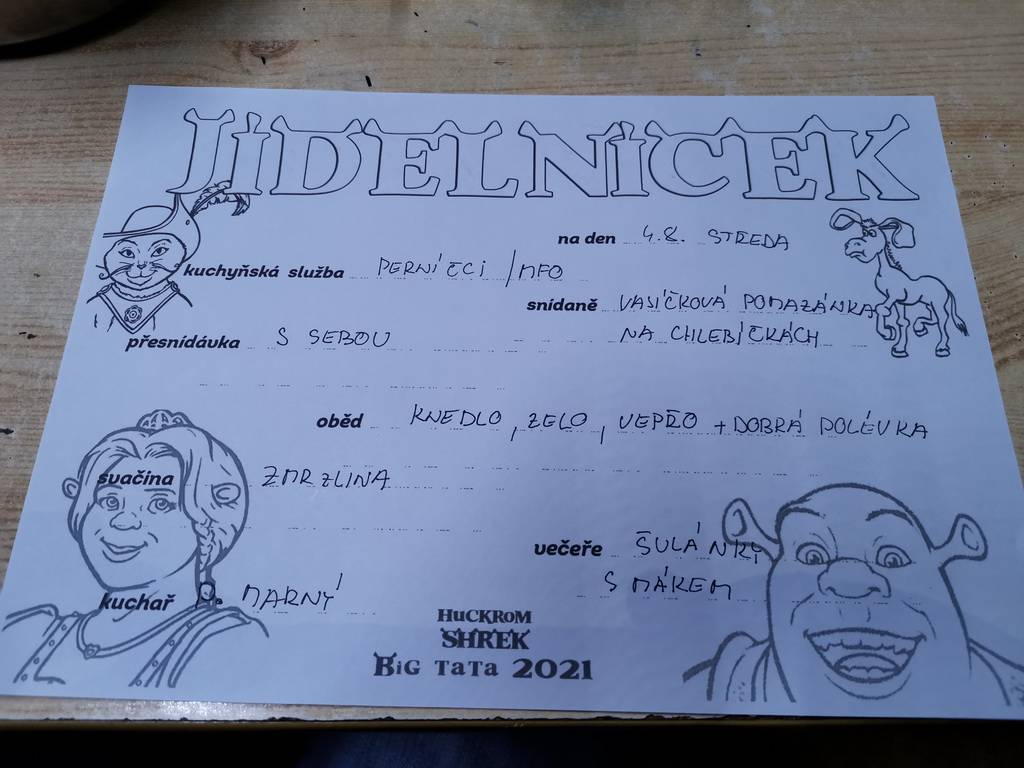 JIDELNICEK
na den 4.8. STŘEDA
kuchyňská služba PERNÍČCI / MFO
snídaně VAJÍČKOVÁ POMAZÁNKA
NA CHLEBÍČKÁCH
přesnídávka S SEBOU
oběd KNEDLO, ZELO, VEPŘO + DOBRÁ POLÉVKA
svačina ZMRZLINA
večeře ŠULÁNKY
S MÁKEM
kuchař MARNÝ
HUCKROM
SHREK
BIG TATA 2021